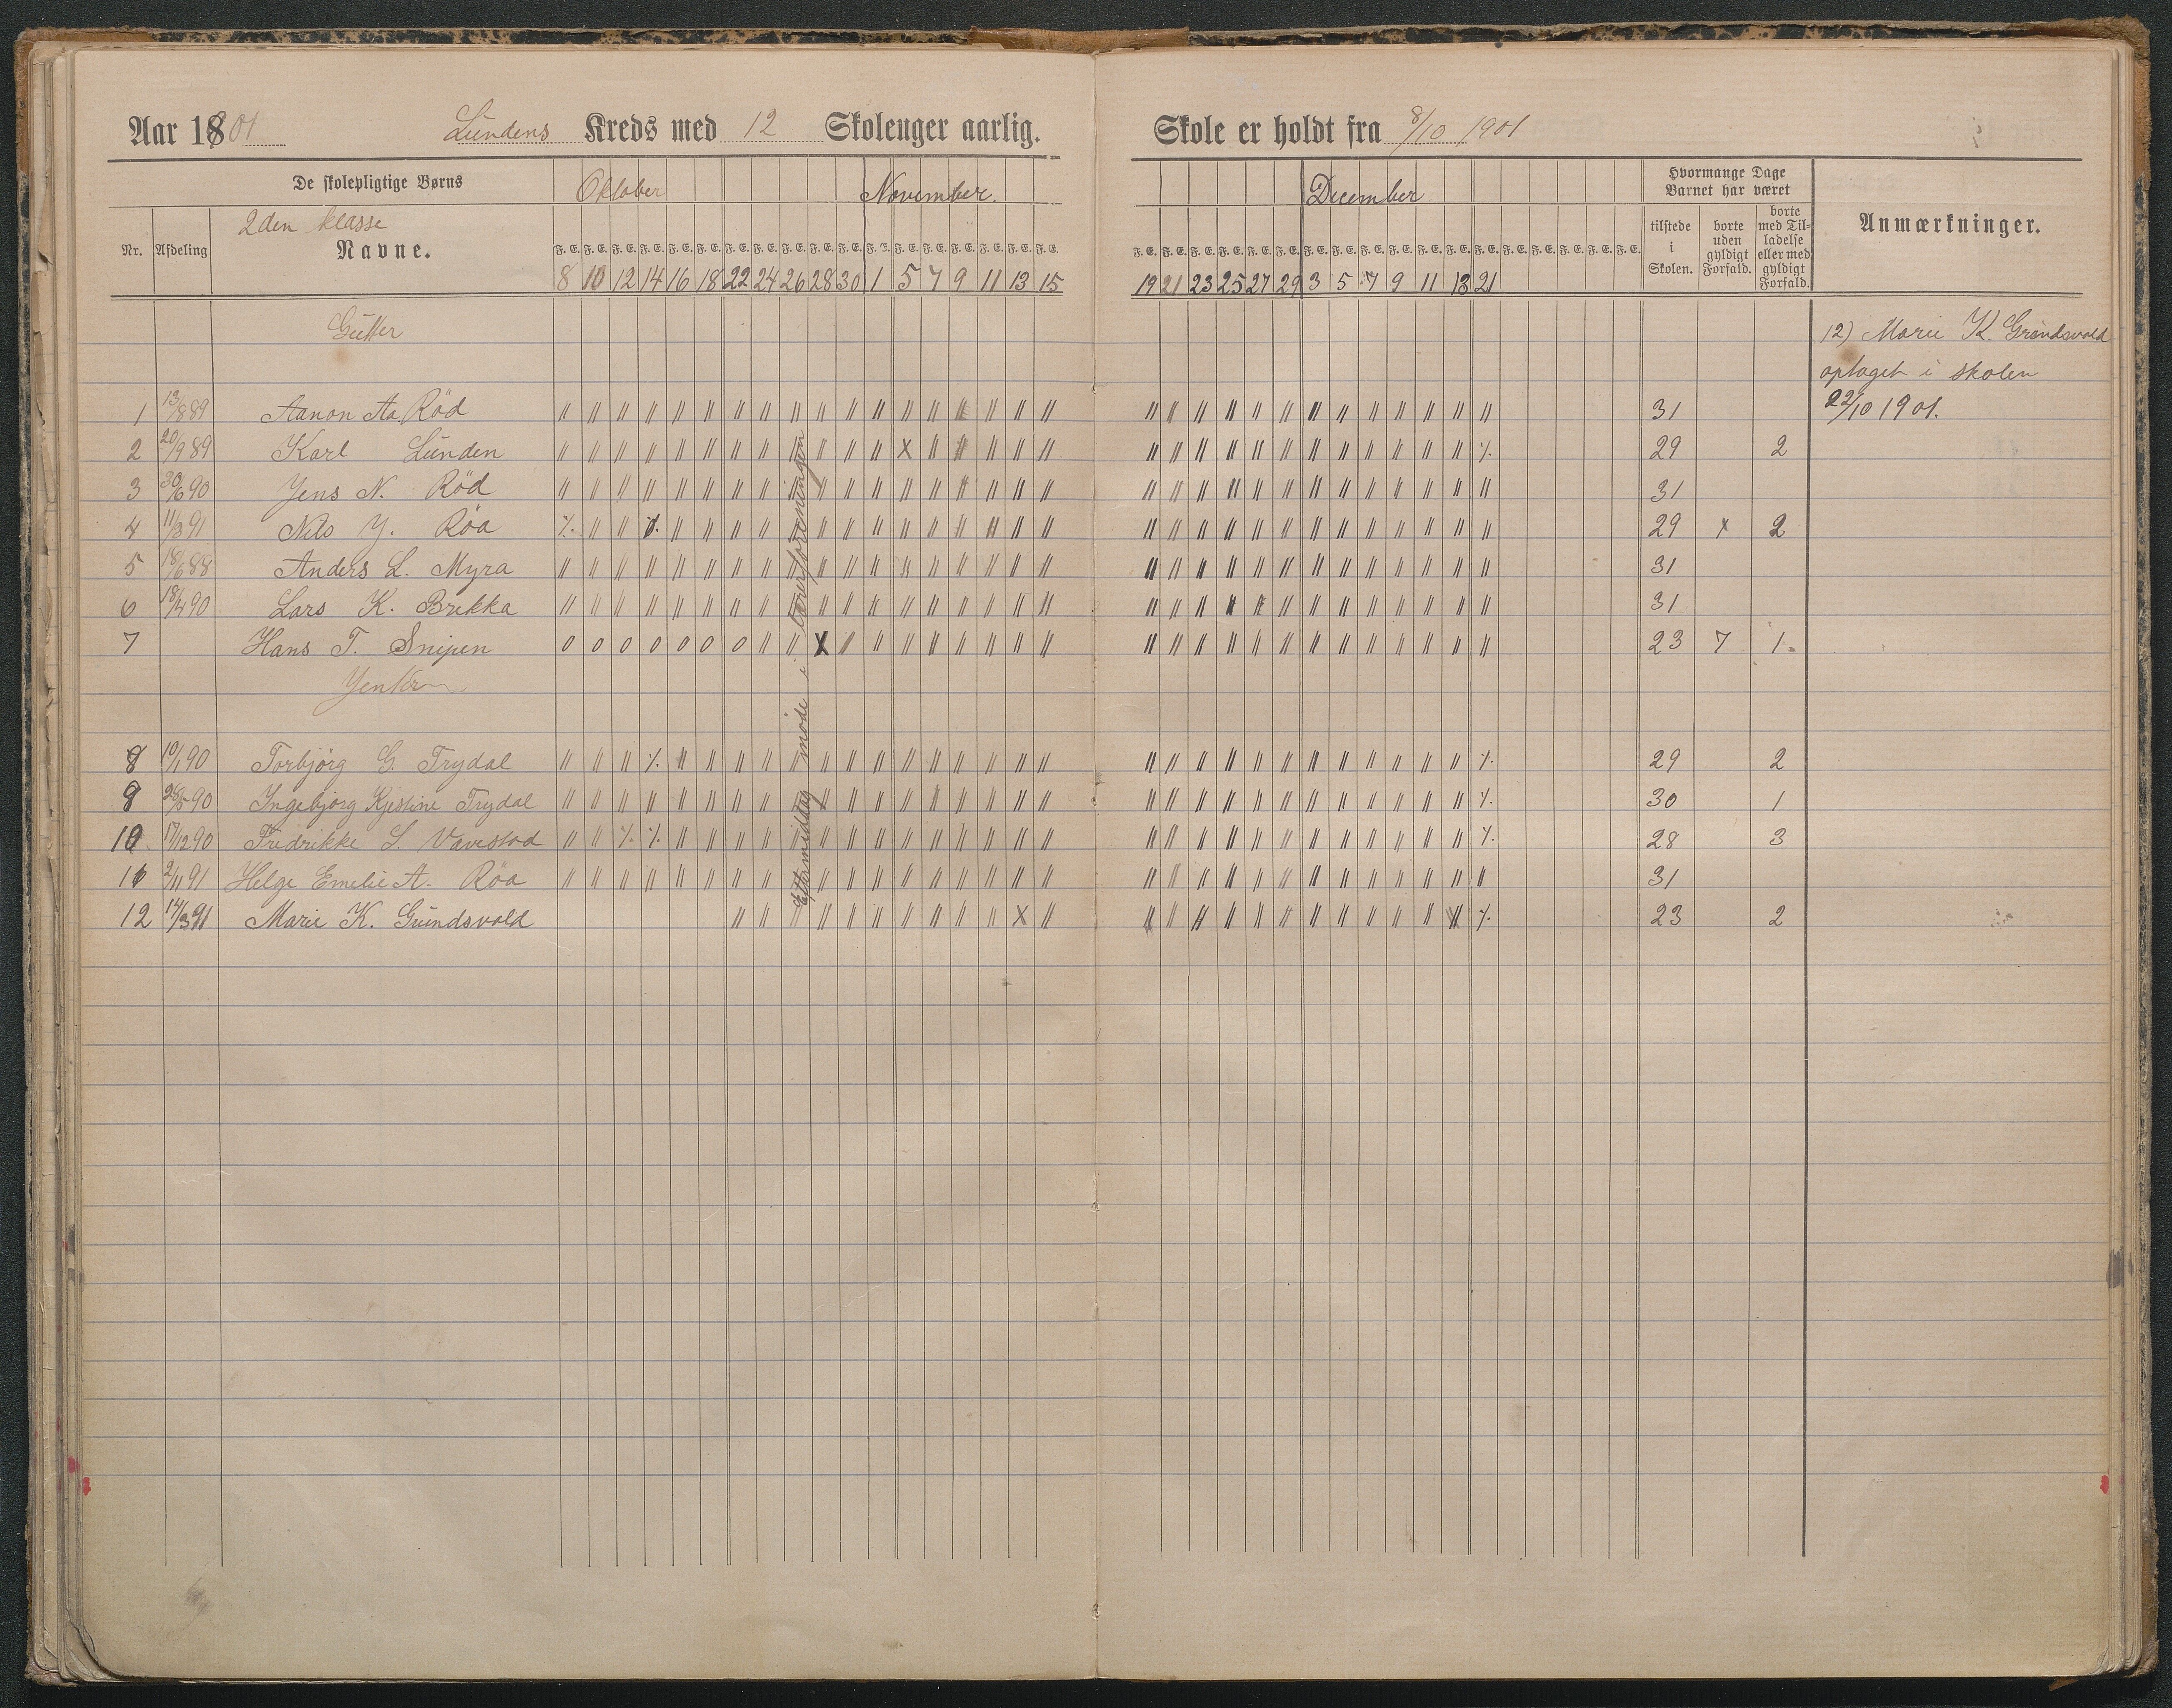 Aar 1901 Lundens Kreds med 12 Skoleuger aarlig. Skole er holdt fra 8/10 1901
De skolepligtige Børns Oktober November. December Hvormange Dage Barnet har været
2den klasse
Nr. Afdeling Navne. tilstede i Skolen. borte uden gyldigt Forfald. borte med Tilladelse eller med gyldigt Forfald. Anmærkninger.
F. E. F. E. F. E. F. E. F. E. F. E. F. E. F. E. F. E. F. E. F. E. F. E. F. E. F. E. F. E. F. E. F. E. F. E. F. E. F. E. F. E. F. E. F. E. F. E. F. E. F. E. F. E. F. E. F. E. F. E. F. E. F. E. F. E. F. E. F. E. F. E.
8 10 12 14 16 18 22 24 26 28 30 1 5 7 9 11 13 15 19 21 23 25 27 29 3 5 7 9 11 13 21
Gutter
12) Marie K. Grundsvold
optaget i skolen
22/10 1901.
1 13/8 89 Aanon Aa. Röd 31
2 20/9 89 Karl Lunden 29 2
3 30/6 90 Jens N. Röd 31
4 11/3 91 Nils J. Röa 29 x 2
5 18/6 88 Anders L. Myra 31
6 18/4 90 Lars K. Brekka 31
7 Hans T. Snipen 0 0 0 0 0 0 0 23 7 1
Jenter
8 10/1 90 Torbjörg G. Trydal 29 2
9 28/5 90 Ingebjörg Kjestine Trydal 30 1
10 17/12 90 Fredrikke S. Vavestad 28 3
11 2/11 91 Helge Emelie A. Röa 31
12 14/3 91 Marie K. Grundsvold 23 2
Eftermiddag möde i lærerforeningen